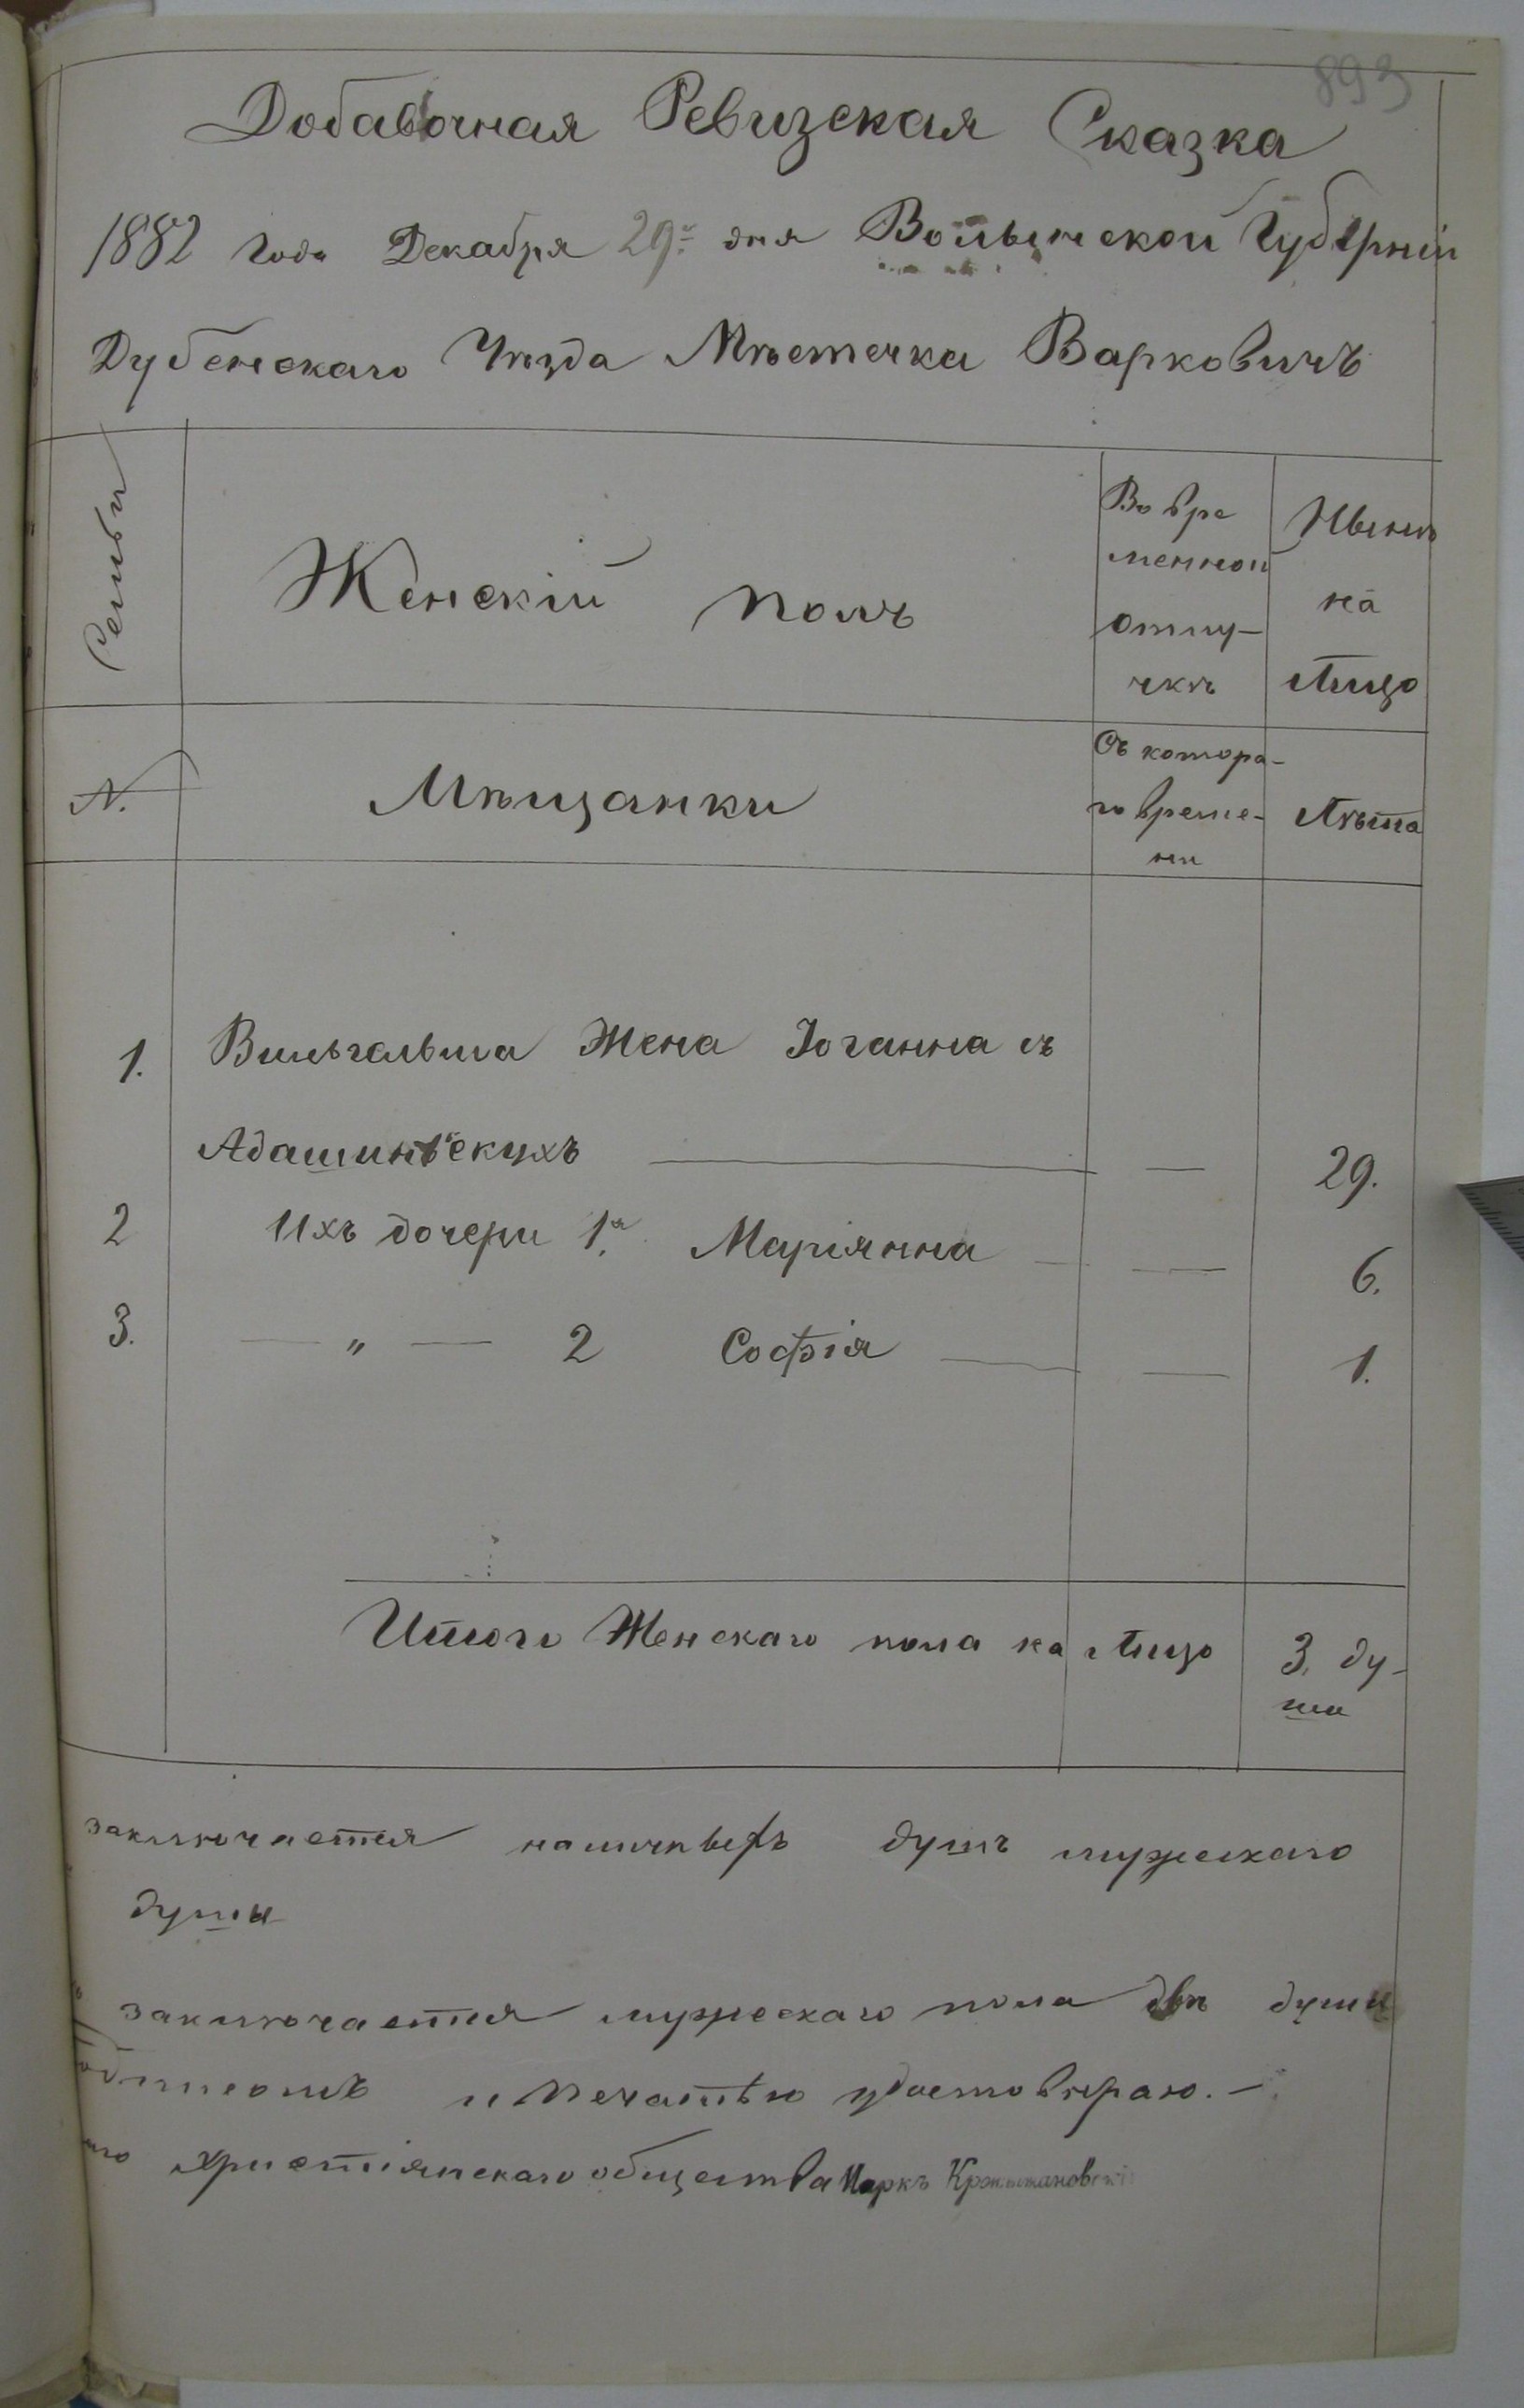 893
Добавочная Ревизская Сказка
1882 года Декабря 29го дня Волынской Губерніи
Дубенскаго Уѣзда Мѣстечка Варковичъ
Семьи
Женскій полъ
Во вре
менной
отлу-
чкѣ
Нынѣ
на
Лицо
N.
Мѣщанки
Съ котора-
го време-
ни
Лѣта
1. Вильгельма Жена Іоганна съ
Адашинскихъ — 29.
2 Ихъ дочери 1я Маріянна — 6.
3. — " — 2 Софія — 1.
Итого Женскаго пола на Лицо 3. ду-
ши
заключается наличныхъ душъ мужескаго
души
заключается мужескаго пола двѣ души
подписомъ и печатью удостовѣраю. —
христіянскаго общества Маркъ